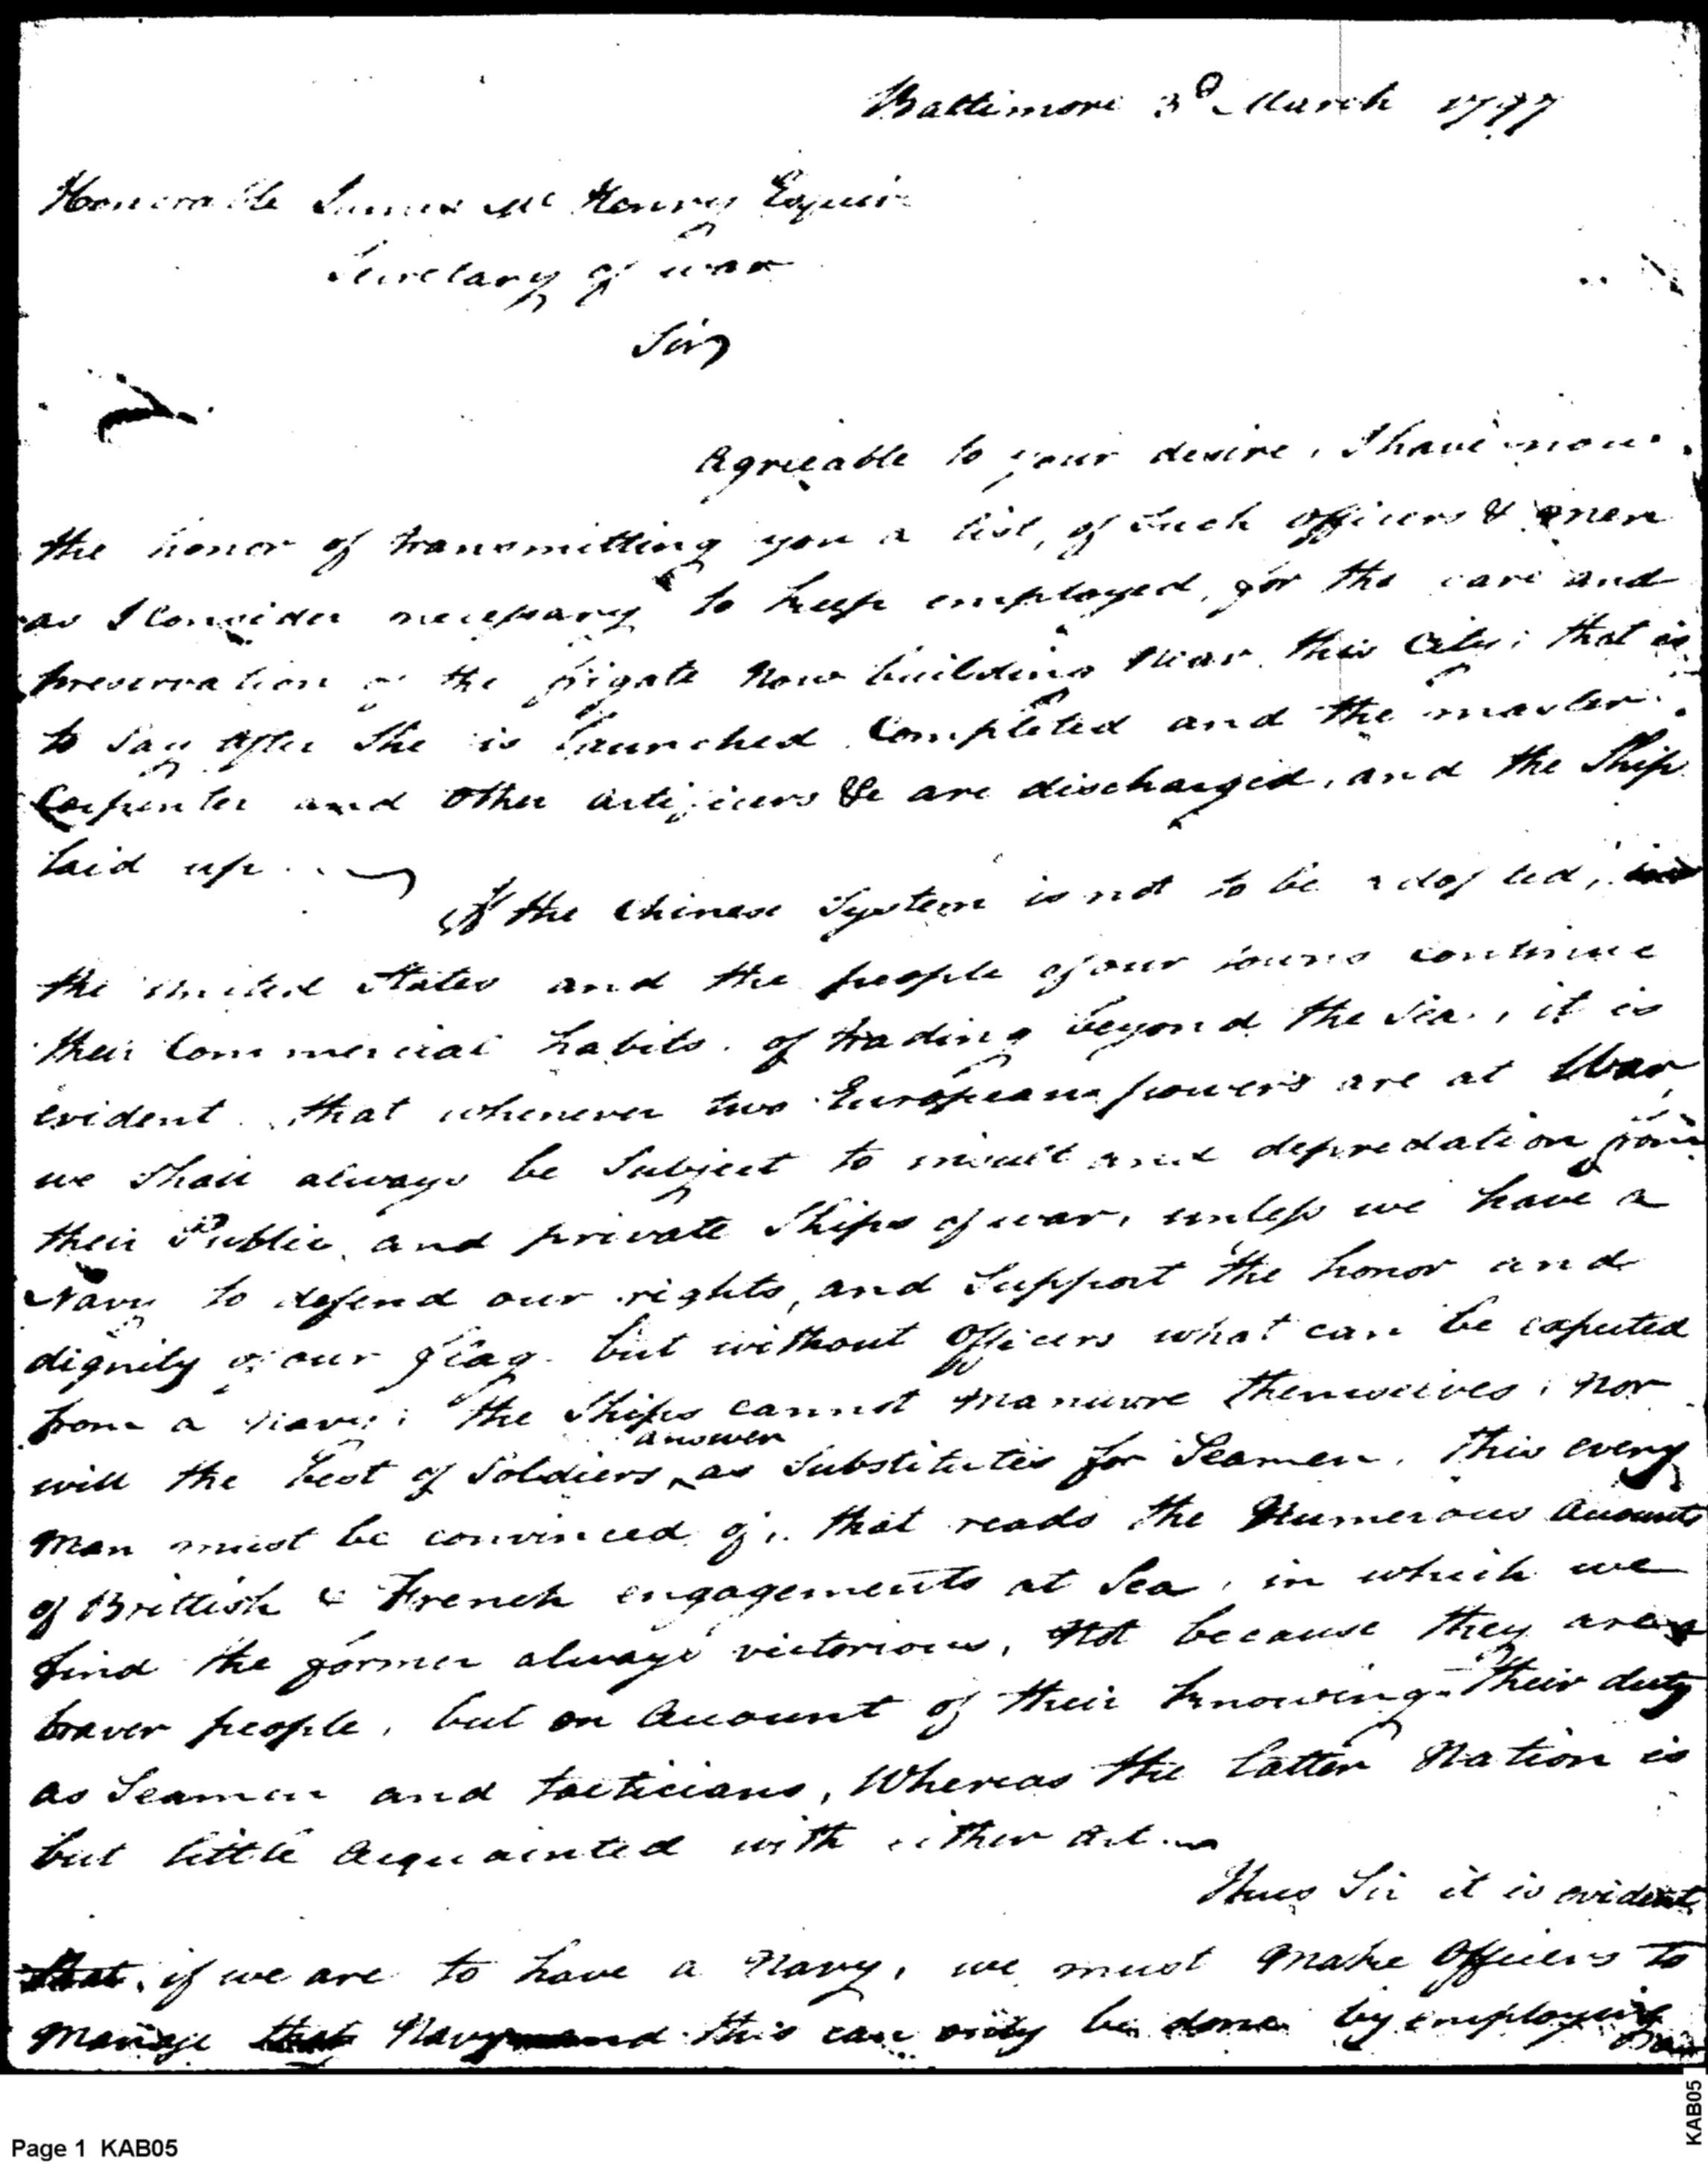 Baltimore 3d March 1797
Honorable James Mc Henry Esquire
Secretary of war
Sir,
Agreeable to your desire, I have now
the honor of transmitting you a list, of such officers & men
as I Consider necessary to keep employed, for the care and
preservation of the frigate Now building Near this City; that is
to say after she is launched Completed and the master
Carpenter and other artificers &c are discharged, and the Ship
laid up.
If the Chinese System is not to be adopted,
the United States and the people of our towns continue
their Commercial habits of trading beyond the Sea, it is
evident that whenever two European powers are at War,
we Shall always be Subject to insult and depredation from
their Public and private Ships of war, unless we have a
Navy to defend our rights, and Support the honor and
dignity of our flag. but without Officers what can be expected
from a Navy; the Ships cannot Manuvre themselves; Nor
answer
will the best of Soldiers as Substitutes for Seamen. This every
Man must be convinced of, that reads the Numerous Accounts
of Brittish & French engagements at Sea, in which we
find the former always victorious, Not because they are
braver people, but on Account of their knowing their duty
as Seamen and tacticians, Whereas the latter Nation is
but little Acquainted with either Art.
Thus Sir it is evident
that if we are to have a Navy, we must Make Officers to
Manage that Navy and this can only be done by employing
Page 1 KAB05
KAB05